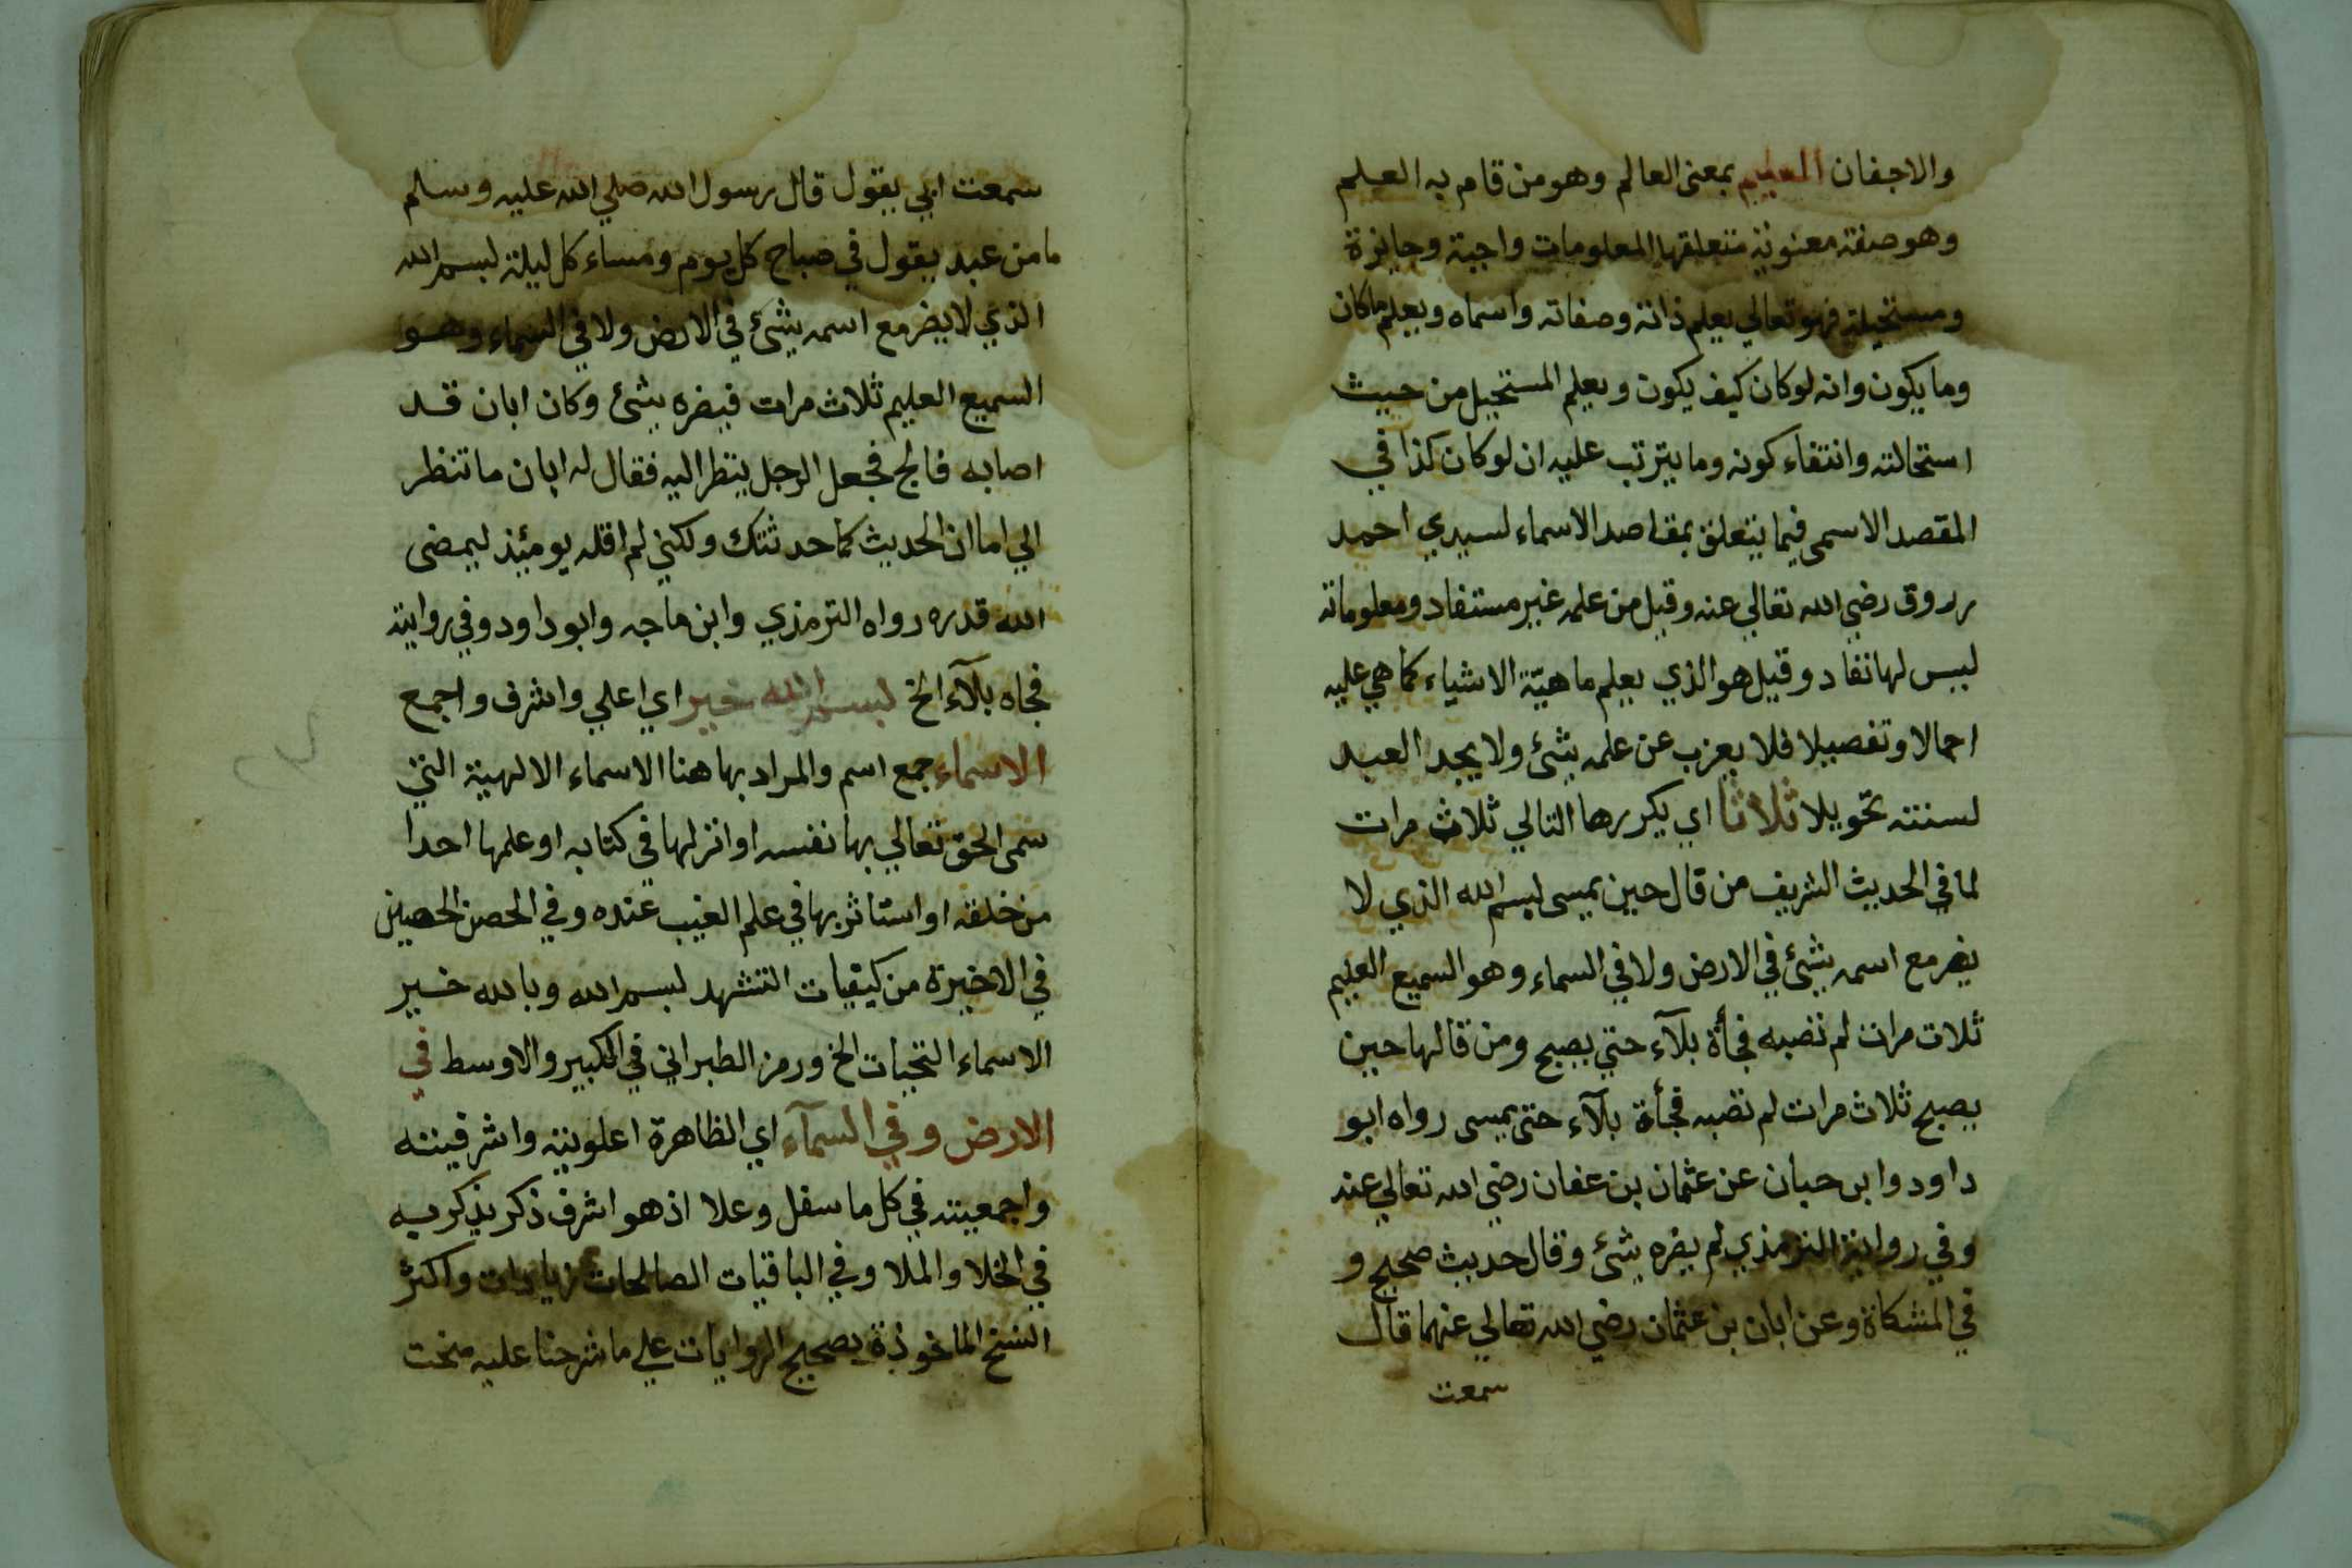 والاجفان العليم بمعنى العالم وهو من قام به العلم
وهو صفة معنوية متعلقها المعلومات واجبة وجايزة
ومستحيلة فهو تعالي يعلم ذاته وصفاته واسماه ويعلم ماكان
وما يكون وانه لوكان كيف يكون ويعلم المستحيل من حيث
استحالته وانتفاء كونه وما يترتب عليه ان لوكان كذا في
المقصد الاسمى فيما يتعلق بمقاصد الاسماء لسيدي احمد
زروق رضي الله تعالي عنه وقيل من علمه غير مستفاد ومعلوماته
ليس لها نفاد وقيل هو الذي يعلم ماهيّة الاشياء كما هي عليه
اجمالا وتفصيلا فلا يعزب عن علمه شئ ولا يجد العبد
لسنته تحويلا ثلاثا اي يكررها التالي ثلاث مرات
لما في الحديث الشريف من قال حين يمسى بسم الله الذي لا
يضر مع اسمه شئ في الارض ولا في السماء وهو السميع العليم
ثلاث مرات لم تصبه فجأة بلآء حتي يصبح ومن قالها حين
يصبح ثلاث مرات لم تصبه فجأة بلآء حتى يمسى رواه ابو
داود وابن حبان عن عثمان بن عفان رضي الله تعالي عنه
وفي رواية الترمذي لم يضره شئ وقال حديث صحيح و
في المشكاة وعن ابان بن عثمان رضي الله تعالي عنهما قال
سمعت
سمعت ابي يقول قال رسول الله صلي الله عليه وسلم
ما من عبد يقول في صباح كل يوم ومساء كل ليلة بسم الله
الذي لا يضر مع اسمه شئ في الارض ولا في السماء وهو
السميع العليم ثلاث مرات فيضره شئ وكان ابان قد
اصابه فالج فجعل الرجل ينظر اليه فقال له ابان ما تنظر
الي اما ان الحديث كما حدثتك ولكني لم اقله يومئذ ليمضى
الله قدره رواه الترمذي وابن ماجه وابو داود وفي رواية
فجاه بلآء الخ بسم الله خير اي اعلي واشرف واجمع
الاسماء جمع اسم والمراد بها هنا الاسماء الالهية التي
سمى الحق تعالي بها نفسه او انزلها في كتابه او علمها احدا
من خلقه او استاثر بها في علم الغيب عنده وفي الحصن الحصين
في الاخيرة من كيفيات التشهد بسم الله وبالله خير
الاسماء التحيات الخ ورمز الطبراني في الكبير والاوسط في
الارض وفي السمآء اي الظاهرة اعلويته واشرفيته
واجمعيته في كل ما سفل وعلا اذ هو اشرف ذكر يذكر به
في الخلا والملا وفي الباقيات الصالحات زيادات واكثر
النسخ الماخوذة بصحيح الروايات علي ما شرحنا عليه منحت